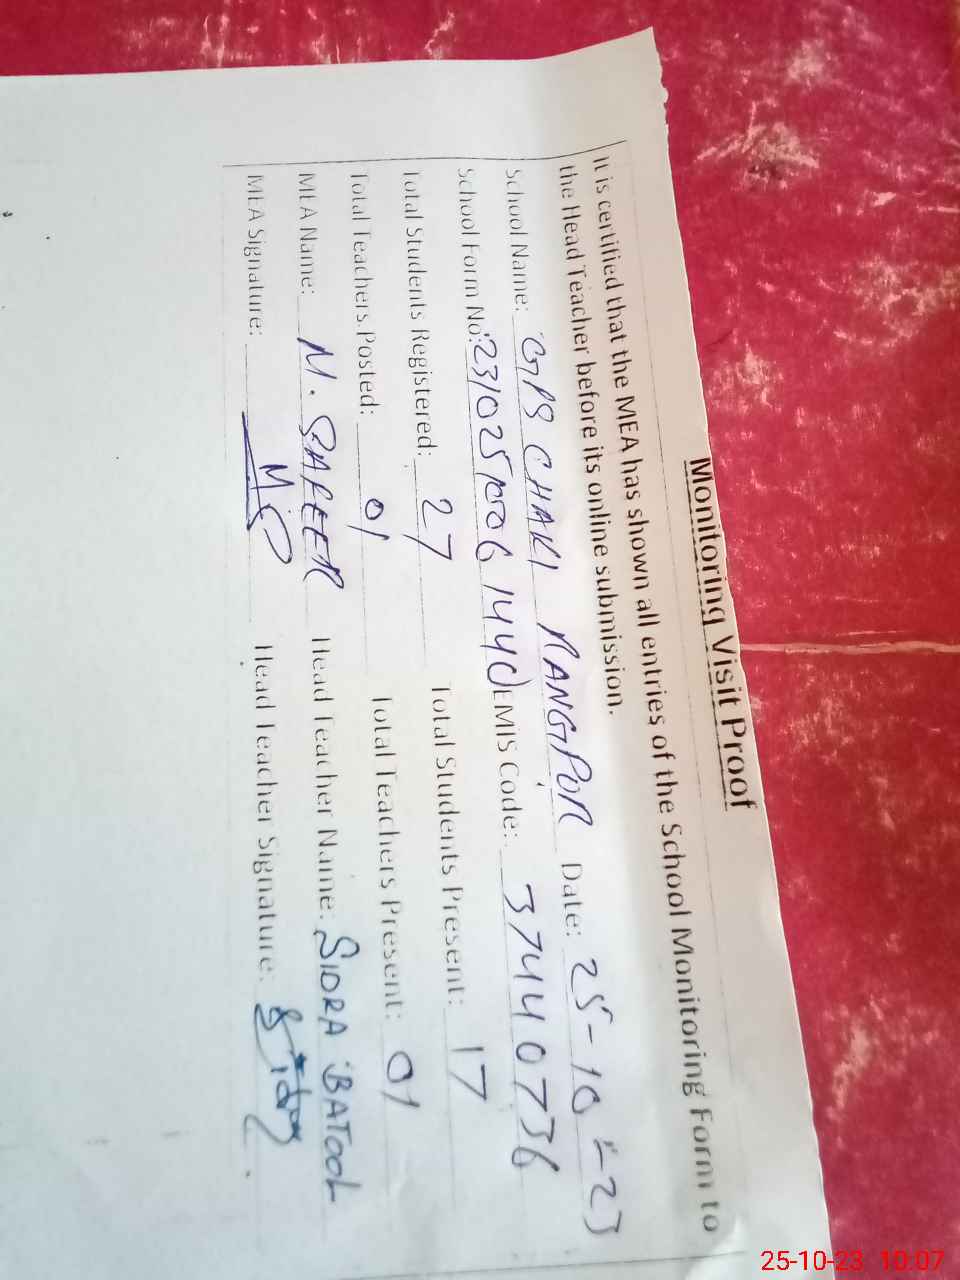 Monitoring Visit Proof
It is certified that the MEA has shown all entries of the School Monitoring Form to
the Head Teacher before its online submission.
School Name: GPS CHAKI NANGPUR Date: 25-10-23
School Form No: 23102510061440 EMIS Code: 37440736
Total Students Registered: 27 Total Students Present: 17
Total Teachers Posted: 01 Total Teachers Present: 01
MEA Name: M. SAFEER Head Teacher Name: SIDRA BATOOL
MEA Signature: Head Teacher Signature: Sidra
25-10-23 10:07